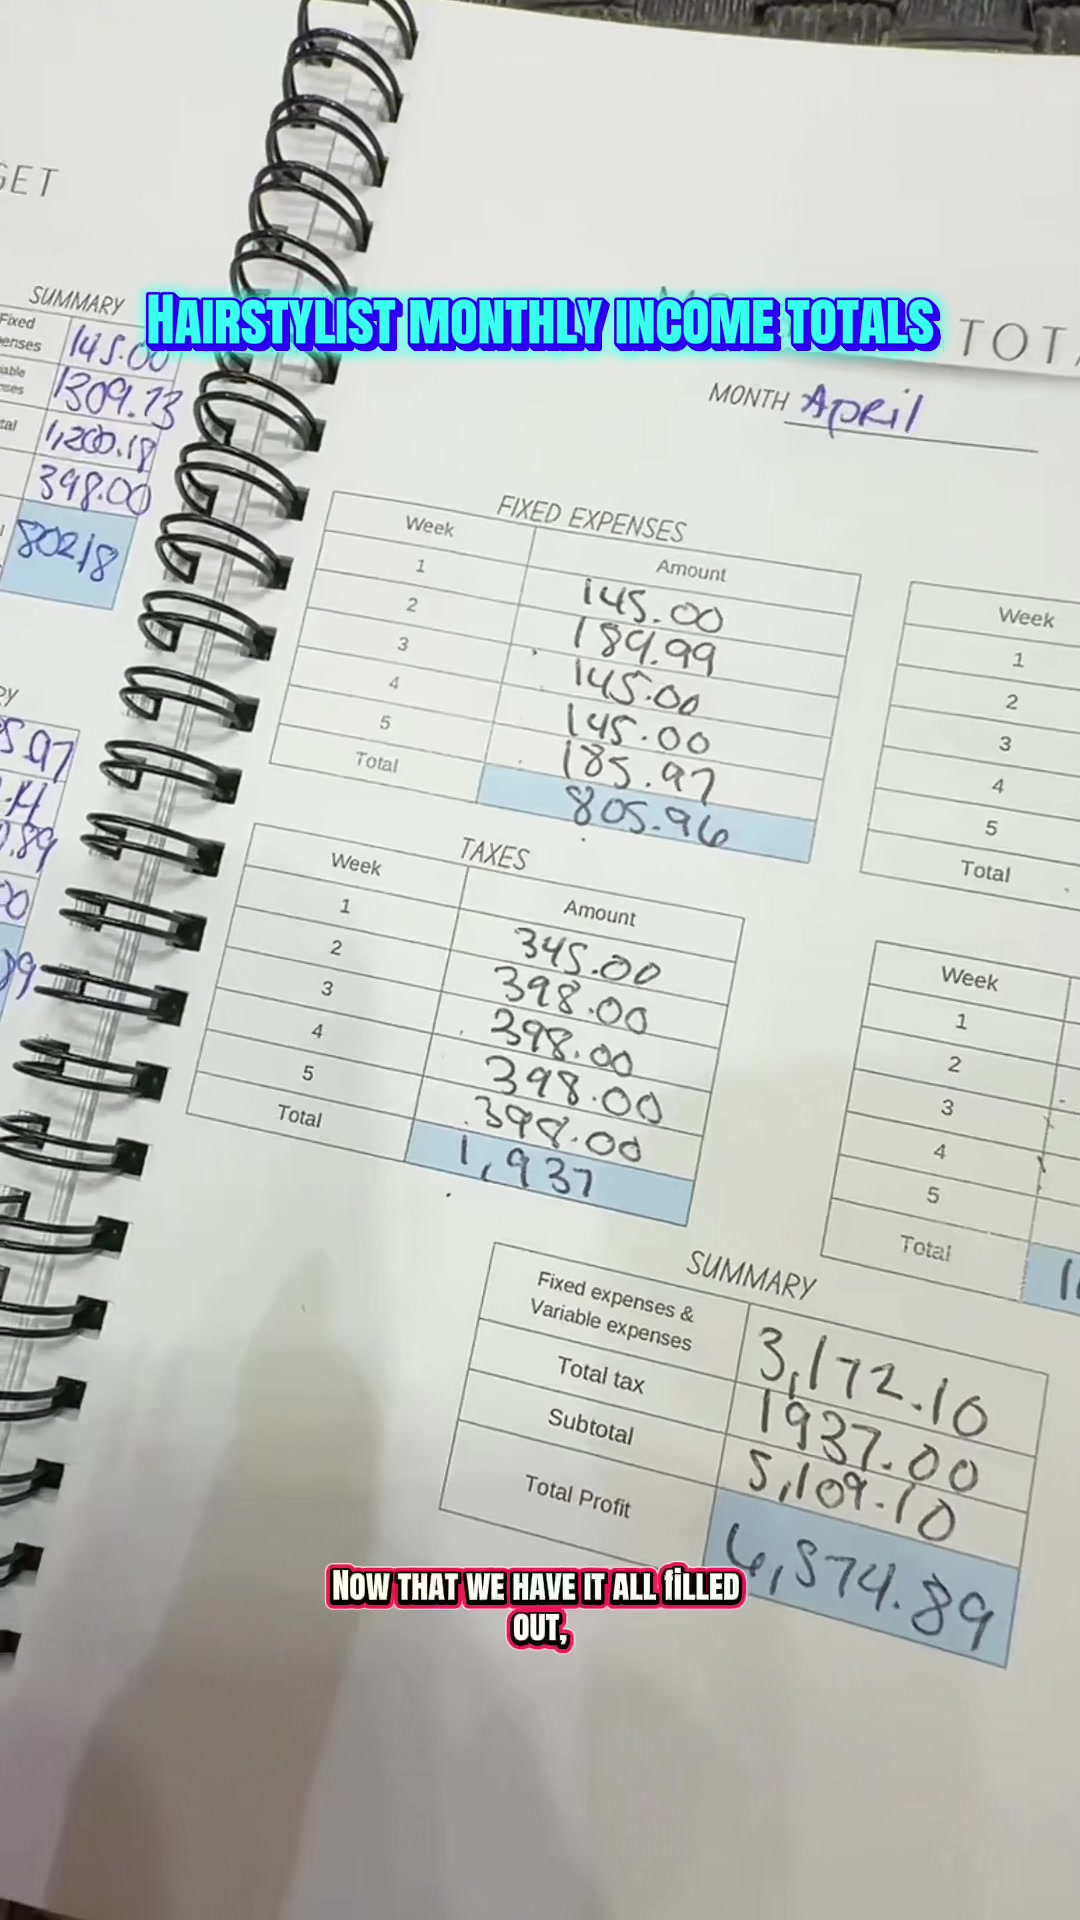 GET
SUMMARY
Fixed
145.00
1309.73
1,200.18
398.00
802.18
HAIRSTYLIST MONTHLY INCOME TOTALS
MONTH April
FIXED EXPENSES
Week Amount
1 145.00
2 189.99
3 145.00
4 145.00
5 185.97
Total 805.96
Week
1
2
3
4
5
Total
TAXES
Week Amount
1 345.00
2 398.00
3 398.00
4 398.00
5 398.00
Total 1,937
Week
1
2
3
4
5
Total
SUMMARY
Fixed expenses &
Variable expenses 3,172.10
Total tax 1937.00
Subtotal 5,109.10
Total Profit 6,574.89
NOW THAT WE HAVE IT ALL FILLED
OUT,